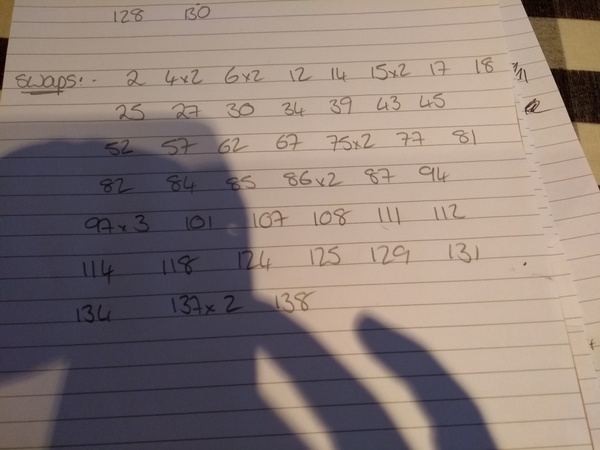 128 130
swaps:. 2 4x2 6x2 12 14 15x2 17 18
25 27 30 34 39 43 45
52 57 62 67 75x2 77 81
82 84 85 86x2 87 94
97x3 101 107 108 111 112
114 118 124 125 129 131
134 137x2 138